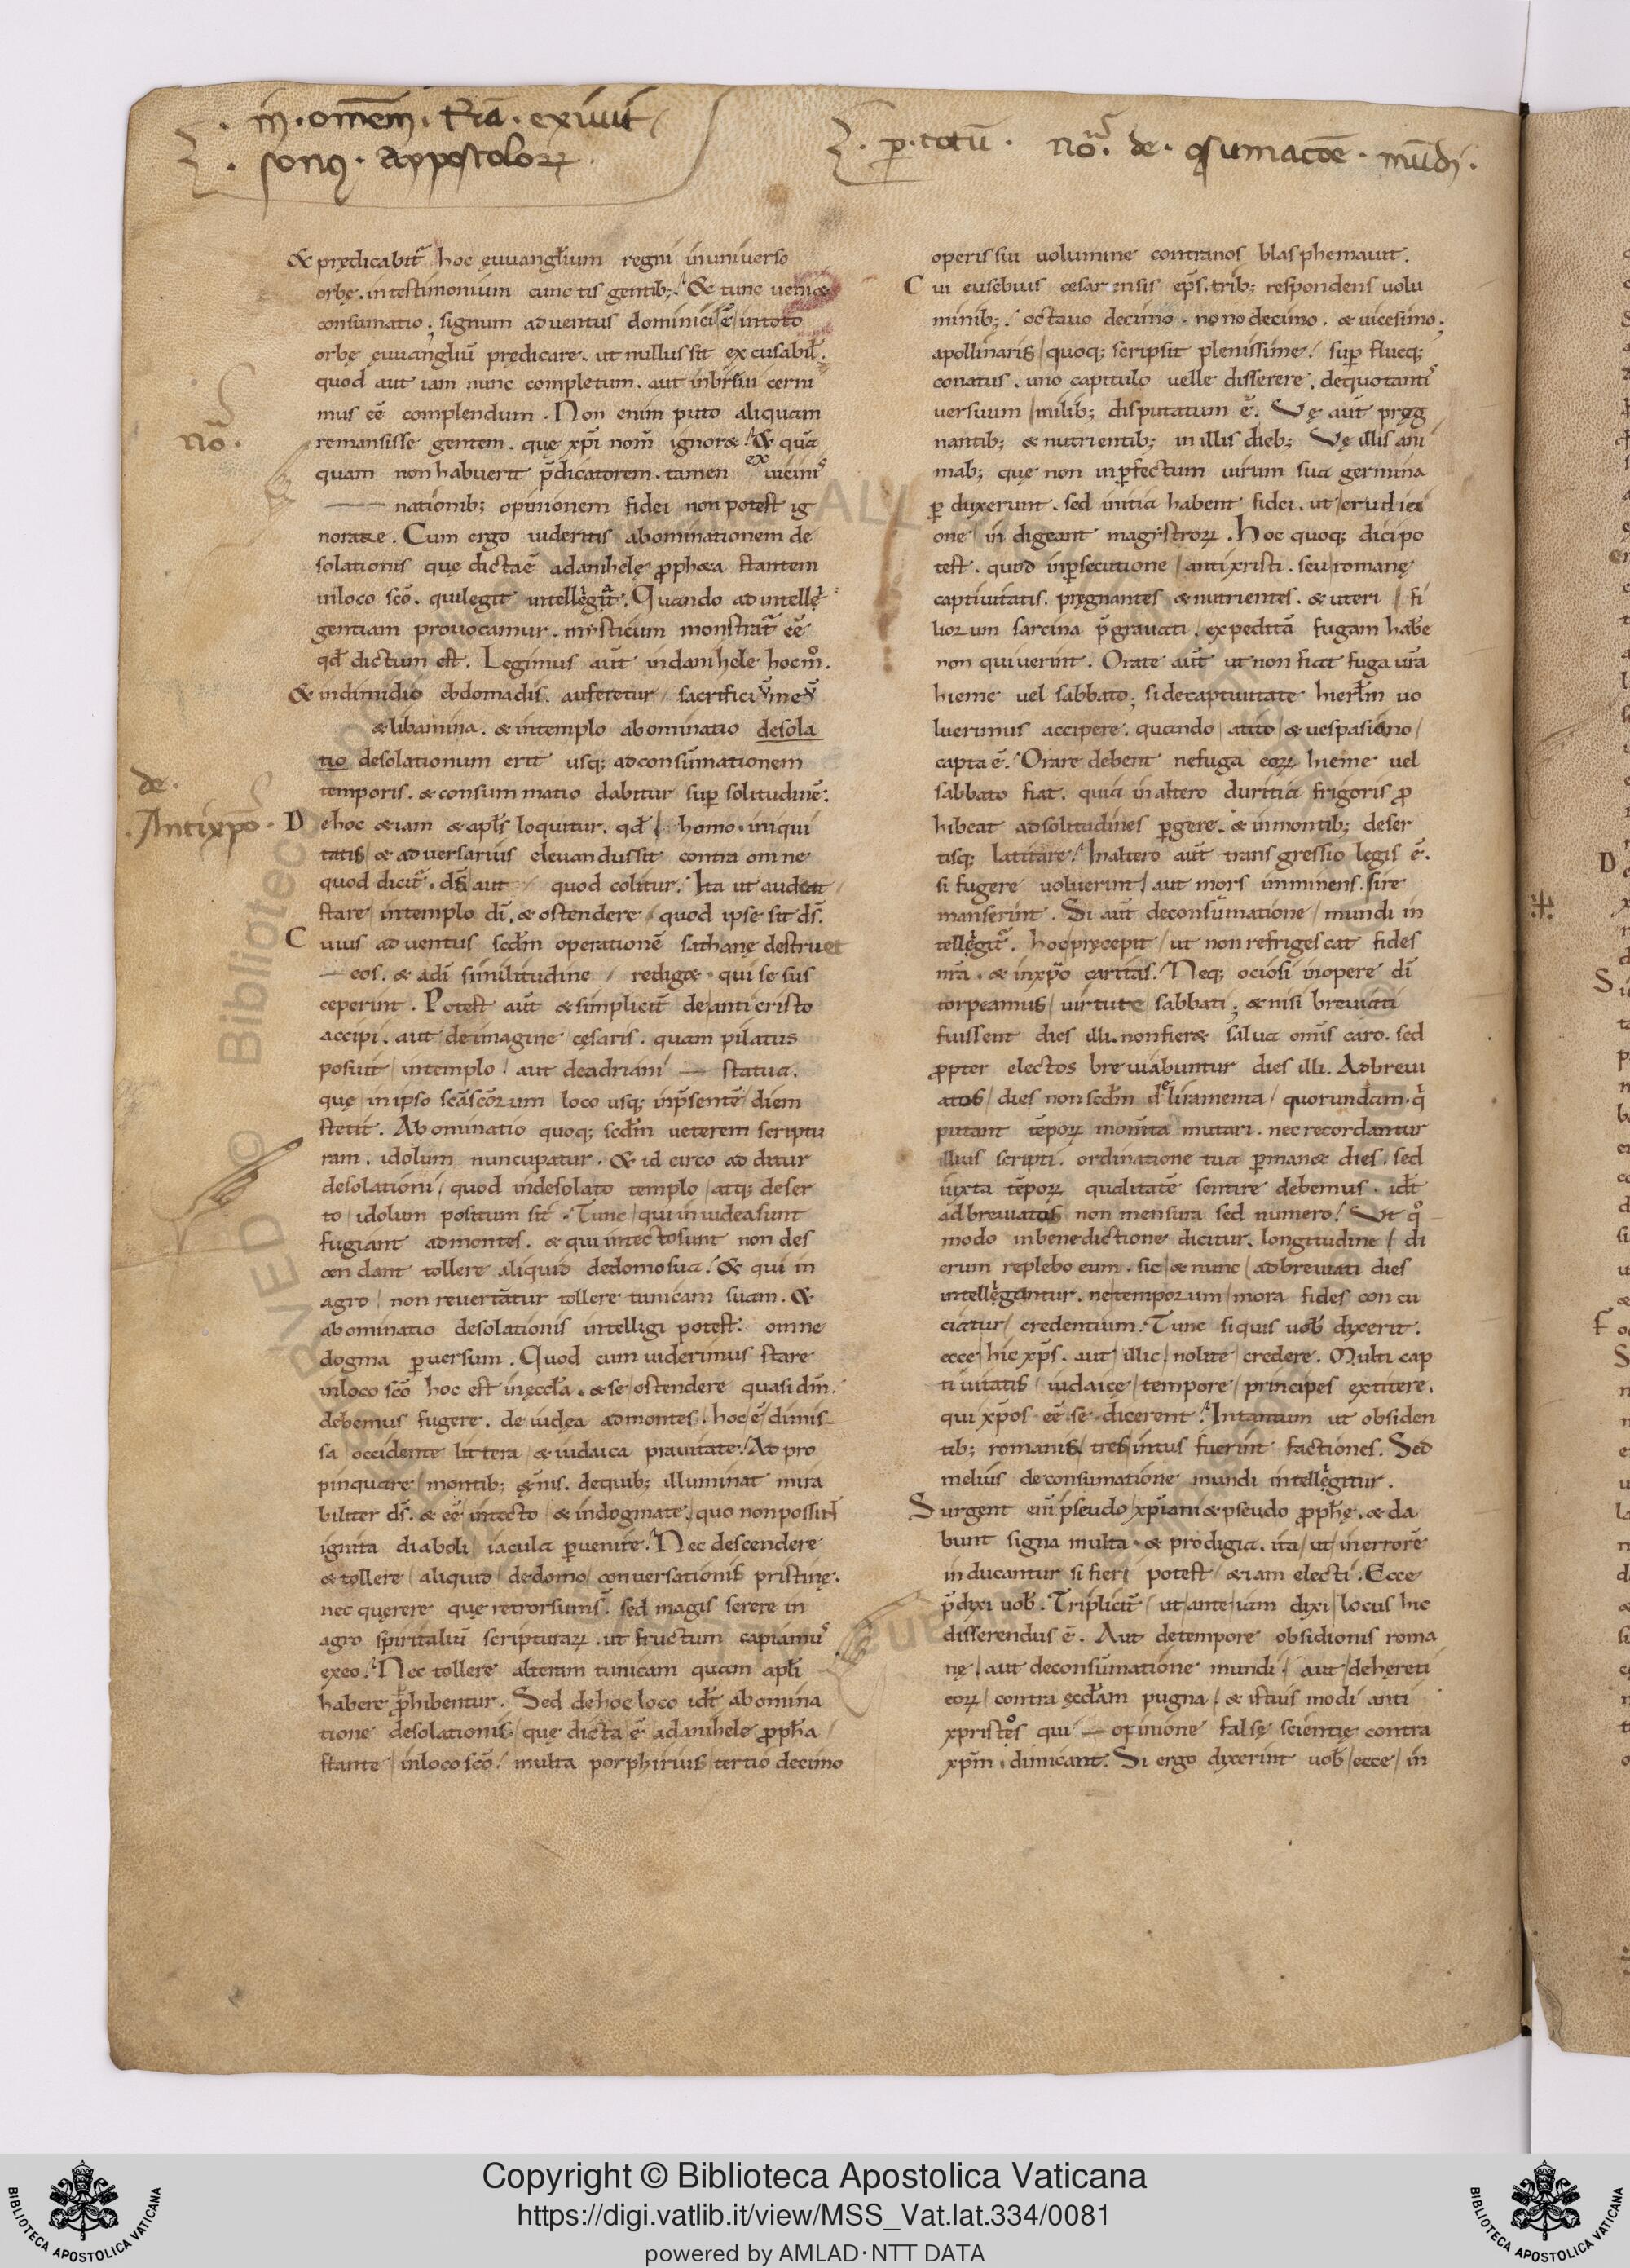 in · om̄em̄ · tr̄a · exiuit
sonꝰ · appostoloꝝ ·
ꝑ · totū · No᷒ · de · ꝯsumacōe · mūdi ·
& prędicabit᷑ hoc ęuuangłium regni inuniuerso
orbę . intestimonium cunctis gentib; . & tunc ueni&
consumatio ; signum aduentus dominici ē intoto
orbę ęuuangliū prędicare . ut nullus sit excusabił .
quod aut iam nunc completum . aut inbreui cerni
mus eē complendum . Non enim puto aliquam
remansisse gentem . quę xp̄i nom̄ ignor& . & quā
quam non habuerit p̄dicatorem . tamen ex uicinis
nationib; opinionem fidei non potest ig
norare . Cum ergo uideritis abominationem de
solationis quę dicta ē adanihelę ꝓph&a stantem
inloco scō . qui legit intellegat . Quando adintelle
gentiam prouocamur . mysticum monstrat᷑ eē
qd̄ dictum est . Legimus aūt indanihele hoc m̊ .
& indimidio ebdomadis auferetur sacrificiū meū
& libamina . & intemplo abominatio desola
tio desolationum erit usq; adconsūmationem
temporis . & consummatio dabitur sup solitudinē .
Nō .
de .
Antixp̄o .
D e hoc &iam & apł̄s loquitur . qd̄ homo iniqui
tatis & aduersarius eleuandus sit contra omne
quod dicit᷑ . ds̄ aut quod colitur . Ita ut audeat
stare intemplo dī . & ostendere quod ipse sit ds̄ .
C uius aduentus scd̄m operationē sathanę destruet
eos . & adī similitudine redig& qui se sus
ceperint . Potest aūt & simplicit̄ de anticristo
accipi . aut deimagine cęsaris . quam pilatus
posuit intemplo . aut deadriani statua .
quę inipso scāscōrum loco usq; inp̄sentē diem
stetit . Abominatio quoq; scd̄m ueterem scriptu
ram . idolum nuncupatur . & id circo additur
desolationi quod indesolato templo atq; deser
to idolum positum sit . Tunc qui iniudea sunt
fugiant admontes . & qui intecto sunt non des
cendant tollere aliquid dedomo sua . & qui in
agro non reuertātur tollere tunicam suam . &
abominatio desolationis intelligi potest . omne
dogma ꝑuersum . Quod cum uiderimus stare
inloco scō hoc est inęccła . & se ostendere quasi dm̄ .
debemus fugere . de iudęa admontes . hoc ē dimis
sa occidente littera & iudaica prauitate . Adpro
pinquare montib; ęt̄nis . dequib; illuminat mira
biliter ds̄ . & eē intecto & indogmate . quo non possint
ignita diaboli iacula ꝑuenire . Nec descendere
& tollere aliquid dedomo conuersationis pristinę .
nec quęrere quę retrorsum s̄ . sed magis serere in
agro spiritaliū scripturaꝝ . ut fructum capiamus
exeo . Nec tollere alteram tunicam quam apłi
habere ꝓhibentur . Sed dehoc loco id̄t abomina
tione desolationis quę dicta ē adanihele ꝓph̄a
stante inloco scō . multa porphirius tertio decimo
operis sui uolumine contra nos blasphemauit .
C ui eusebius cesariensis ep̄s . trib; respondens uolu
minib; . octauo decimo . nono decimo . & uicesimo .
apollinaris quoq; scripsit plenissime . supflueq;
conatus . uno capitulo uelle disserere . dequo tantis
uersuum milib; disputatum ē . Vę aūt pręg
nantib; & nutrientib; in illis dieb; Vę illis ani
mab; quę non inꝑfectum uirum sua germina
ꝑduxerunt . sed initia habent fidei . ut eruditi
one indigeant magistroꝝ . Hoc quoq; dici po
test . quod inꝑsecutione antixristi . seu romanę
captiuitatis . pręgnantes & nutrientes . & uteri fi
liorum sarcina p̄grauati . expeditā fugam habe
non quiuerint . Orate aūt ut non fiat fuga ur̄a
hieme uel sabbato ; si decaptiuitate hierłm uo
luerimus accipere . quando atito & uespasiano
capta ē . Orare debent nefuga eoꝝ hieme uel
sabbato fiat . quia inaltero duritia frigoris ꝓ
hibeat adsolitudines ꝑgere . & inmontib; deser
tisq; latitare . Inaltero aūt transgressio legis ē .
si fugere uoluerint aut mors imminens . si re
manserint . Si aūt deconsūmatione mundi in
tellegit᷑ . hoc pręcepit ut non refrigescat fides
nr̄a . & inxp̄o caritas . Neq; ociosi inopere dī
torpeamus uirtute sabbati ; & nisi breuiati
fuissent dies illi . non fier& salua omīs caro . sed
ꝓpter electos breuiabuntur dies illi . Adbreui
atos dies non scd̄m deliramenta quorundam . qi
putant tēpoꝝ momta mutari . nec recordantur
illius scripti . ordinatione tua ꝑman& dies . sed
iuxta tēpoꝝ qualitatē sentire debemus . id̄t
adbreuiatos non mensura sed numero . Ut qo
modo inbenedictione dicitur . longitudine di
erum replebo eum . sic & nunc adbreuiati dies
intellegantur . ne temporum mora fides concu
ciatur credentium . Tunc siquis uob̄ dixerit .
ecce hic xp̄s . aut illic nolite credere . Multi cap
tiuitatis iudaicę tempore principes extitere .
qui xp̄os eē se dicerent . Intantum ut obsiden
tib; romanis tres intus fuerint factiones . Sed
melius deconsumatione mundi intellegitur .
S urgent enī pseudo xp̄iani & pseudo ꝓph̄ę . & da
bunt signa multa & prodigia . ita ut inerrorē
inducantur si fieri potest &iam electi . Ecce
p̄dixi uob̄ . Triplicit̄ ut ante iam dixi locus hic
disserendus ē . Aut detempore obsidionis roma
nę aut deconsūmatione mundi aut dehęreti
coꝝ contra ęccłam pugna & istius modi anti
xpristos qui opinione falsę scientię contra
xp̄m dimicant . Si ergo dixerint uob̄ ecce in
Copyright © Biblioteca Apostolica Vaticana
https://digi.vatlib.it/view/MSS_Vat.lat.334/0081
powered by AMLAD·NTT DATA
BIBLIOTECA APOSTOLICA VATICANA
BIBLIOTECA APOSTOLICA VATICANA